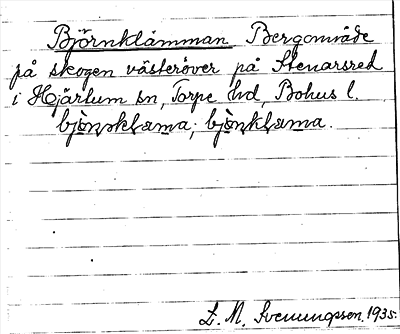 Björnklämman Bergområde
på skogen västeröver på Stenarsred
i Hjärtum sn, Torpe hd, Bohus l.
bjönsklama, bjönklama.
E. M. Svenungsson. 1935.